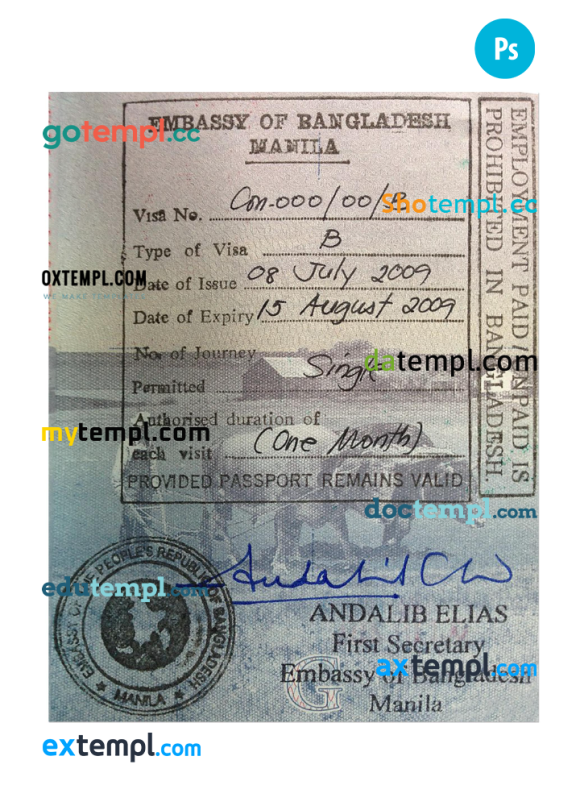 Ps
EMBASSY OF BANGLADESH
MANILA
gotempl.cc
Visa No. Con-000/00/B
Shotempl.cc
Type of Visa B
OXTEMPL.COM
WE MAKE TEMPLATES
Date of Issue 08 July 2009
Date of Expiry 15 August 2009
No. of Journey
Permitted Single
datempl.com
Authorised duration of
mytempl.com
each visit (One Month)
PROVIDED PASSPORT REMAINS VALID
EMPLOYMENT PAID / UNPAID IS
PROHIBITED IN BANGLADESH.
doctempl.com
EMBASSY OF THE PEOPLE'S REPUBLIC OF BANGLADESH
★ MANILA ★
edutempl.com
ANDALIB ELIAS
First Secretary
Embassy of Bangladesh
axtempl.com
Manila
G
extempl.com